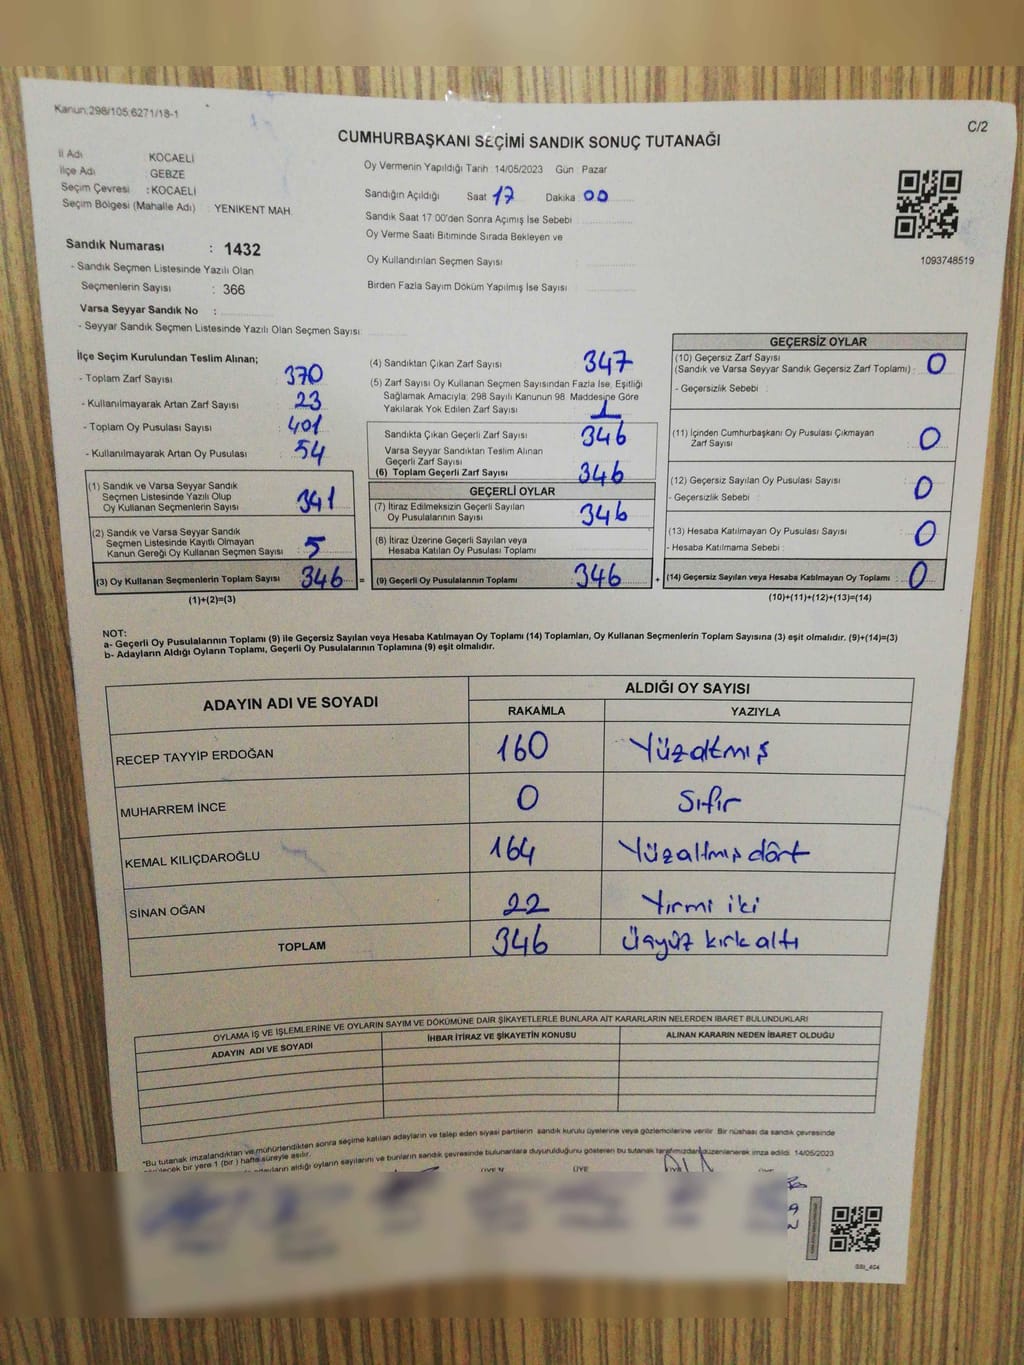 Kanun:298/105;6271/18-1
C/2
CUMHURBAŞKANI SEÇİMİ SANDIK SONUÇ TUTANAĞI
İl Adı : KOCAELİ
İlçe Adı : GEBZE
Seçim Çevresi : KOCAELİ
Seçim Bölgesi (Mahalle Adı) YENİKENT MAH.
Oy Vermenin Yapıldığı Tarih 14/05/2023 Gün Pazar
Sandığın Açıldığı Saat 17 Dakika 00
Sandık Saat 17:00'den Sonra Açımış İse Sebebi
Oy Verme Saati Bitiminde Sırada Bekleyen ve
Oy Kullandırılan Seçmen Sayısı
Birden Fazla Sayım Döküm Yapılmış İse Sayısı
1093748519
Sandık Numarası : 1432
- Sandık Seçmen Listesinde Yazılı Olan
Seçmenlerin Sayısı : 366
Varsa Seyyar Sandık No :
- Seyyar Sandık Seçmen Listesinde Yazılı Olan Seçmen Sayısı
İlçe Seçim Kurulundan Teslim Alınan;
- Toplam Zarf Sayısı : 370
- Kullanılmayarak Artan Zarf Sayısı : 23
- Toplam Oy Pusulası Sayısı : 401
- Kullanılmayarak Artan Oy Pusulası : 54
(1) Sandık ve Varsa Seyyar Sandık
Seçmen Listesinde Yazılı Olup
Oy Kullanan Seçmenlerin Sayısı : 341
(2) Sandık ve Varsa Seyyar Sandık
Seçmen Listesinde Kayıtlı Olmayan
Kanun Gereği Oy Kullanan Seçmen Sayısı : 5
(3) Oy Kullanan Seçmenlerin Toplam Sayısı : 346
(1)+(2)=(3)
(4) Sandıktan Çıkan Zarf Sayısı : 347
(5) Zarf Sayısı Oy Kullanan Seçmen Sayısından Fazla İse, Eşitliği
Sağlamak Amacıyla; 298 Sayılı Kanunun 98. Maddesine Göre
Yakılarak Yok Edilen Zarf Sayısı : 1
Sandıkta Çıkan Geçerli Zarf Sayısı : 346
Varsa Seyyar Sandıktan Teslim Alınan
Geçerli Zarf Sayısı
(6) Toplam Geçerli Zarf Sayısı : 346
GEÇERLİ OYLAR
(7) İtiraz Edilmeksizin Geçerli Sayılan
Oy Pusulalarının Sayısı : 346
(8) İtiraz Üzerine Geçerli Sayılan veya
Hesaba Katılan Oy Pusulası Toplamı
= (9) Geçerli Oy Pusulalarının Toplamı : 346
GEÇERSİZ OYLAR
(10) Geçersiz Zarf Sayısı
(Sandık ve Varsa Seyyar Sandık Geçersiz Zarf Toplamı) : 0
- Geçersizlik Sebebi :
(11) İçinden Cumhurbaşkanı Oy Pusulası Çıkmayan
Zarf Sayısı : 0
(12) Geçersiz Sayılan Oy Pusulası Sayısı : 0
- Geçersizlik Sebebi :
(13) Hesaba Katılmayan Oy Pusulası Sayısı : 0
- Hesaba Katılmama Sebebi :
+ (14) Geçersiz Sayılan veya Hesaba Katılmayan Oy Toplamı : 0
(10)+(11)+(12)+(13)=(14)
NOT:
a- Geçerli Oy Pusulalarının Toplamı (9) ile Geçersiz Sayılan veya Hesaba Katılmayan Oy Toplamı (14) Toplamları, Oy Kullanan Seçmenlerin Toplam Sayısına (3) eşit olmalıdır. (9)+(14)=(3)
b- Adayların Aldığı Oyların Toplamı, Geçerli Oy Pusulalarının Toplamına (9) eşit olmalıdır.
ADAYIN ADI VE SOYADI ALDIĞI OY SAYISI
RAKAMLA YAZIYLA
RECEP TAYYİP ERDOĞAN 160 Yüzaltmış
MUHARREM İNCE 0 Sıfır
KEMAL KILIÇDAROĞLU 164 Yüzaltmış dört
SİNAN OĞAN 22 Yirmi iki
TOPLAM 346 Üçyüz kırk altı
OYLAMA İŞ VE İŞLEMLERİNE VE OYLARIN SAYIM VE DÖKÜMÜNE DAİR ŞİKAYETLERLE BUNLARA AİT KARARLARIN NELERDEN İBARET BULUNDUKLARI
ADAYIN ADI VE SOYADI İHBAR İTİRAZ VE ŞİKAYETİN KONUSU ALINAN KARARIN NEDEN İBARET OLDUĞU
*Bu tutanak imzalandıktan ve mühürlendikten sonra seçime katılan adayların ve talep eden siyasi partilerin sandık kurulu üyelerine veya gözlemcilerine verilir. Bir nüshası da sandık çevresinde
bir yere 1 (bir) hafta süreyle asılır.
aldığı oyların sayılarını ve bunların sandık çevresinde bulunanlara duyurulduğunu gösteren bu tutanak tarafımızdan düzenlenerek imza edildi. 14/05/2023
ÜYE